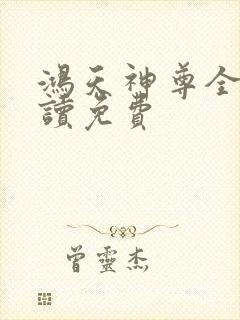 鴻天神尊全
讀免費
曾靈杰